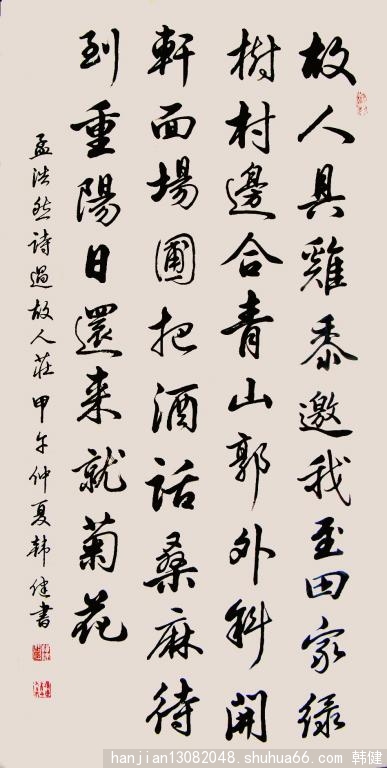 故人具雞黍邀我至田家綠
樹村邊合青山郭外斜開
軒面場圃把酒話桑麻待
到重陽日還来就菊花
孟浩然詩過故人莊甲午仲夏韩健書
hanjian13082048.shuhua66.com 韩健